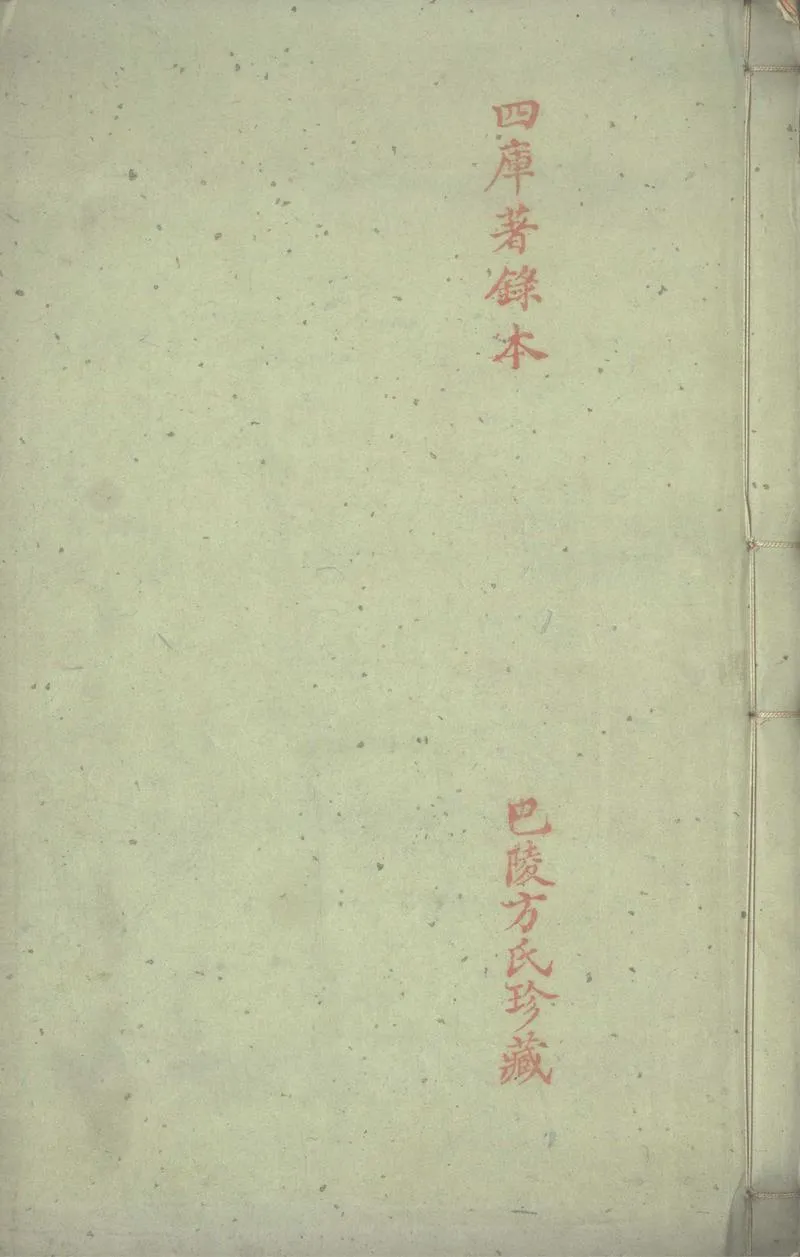 四庫著錄本
巴陵方氏珍藏